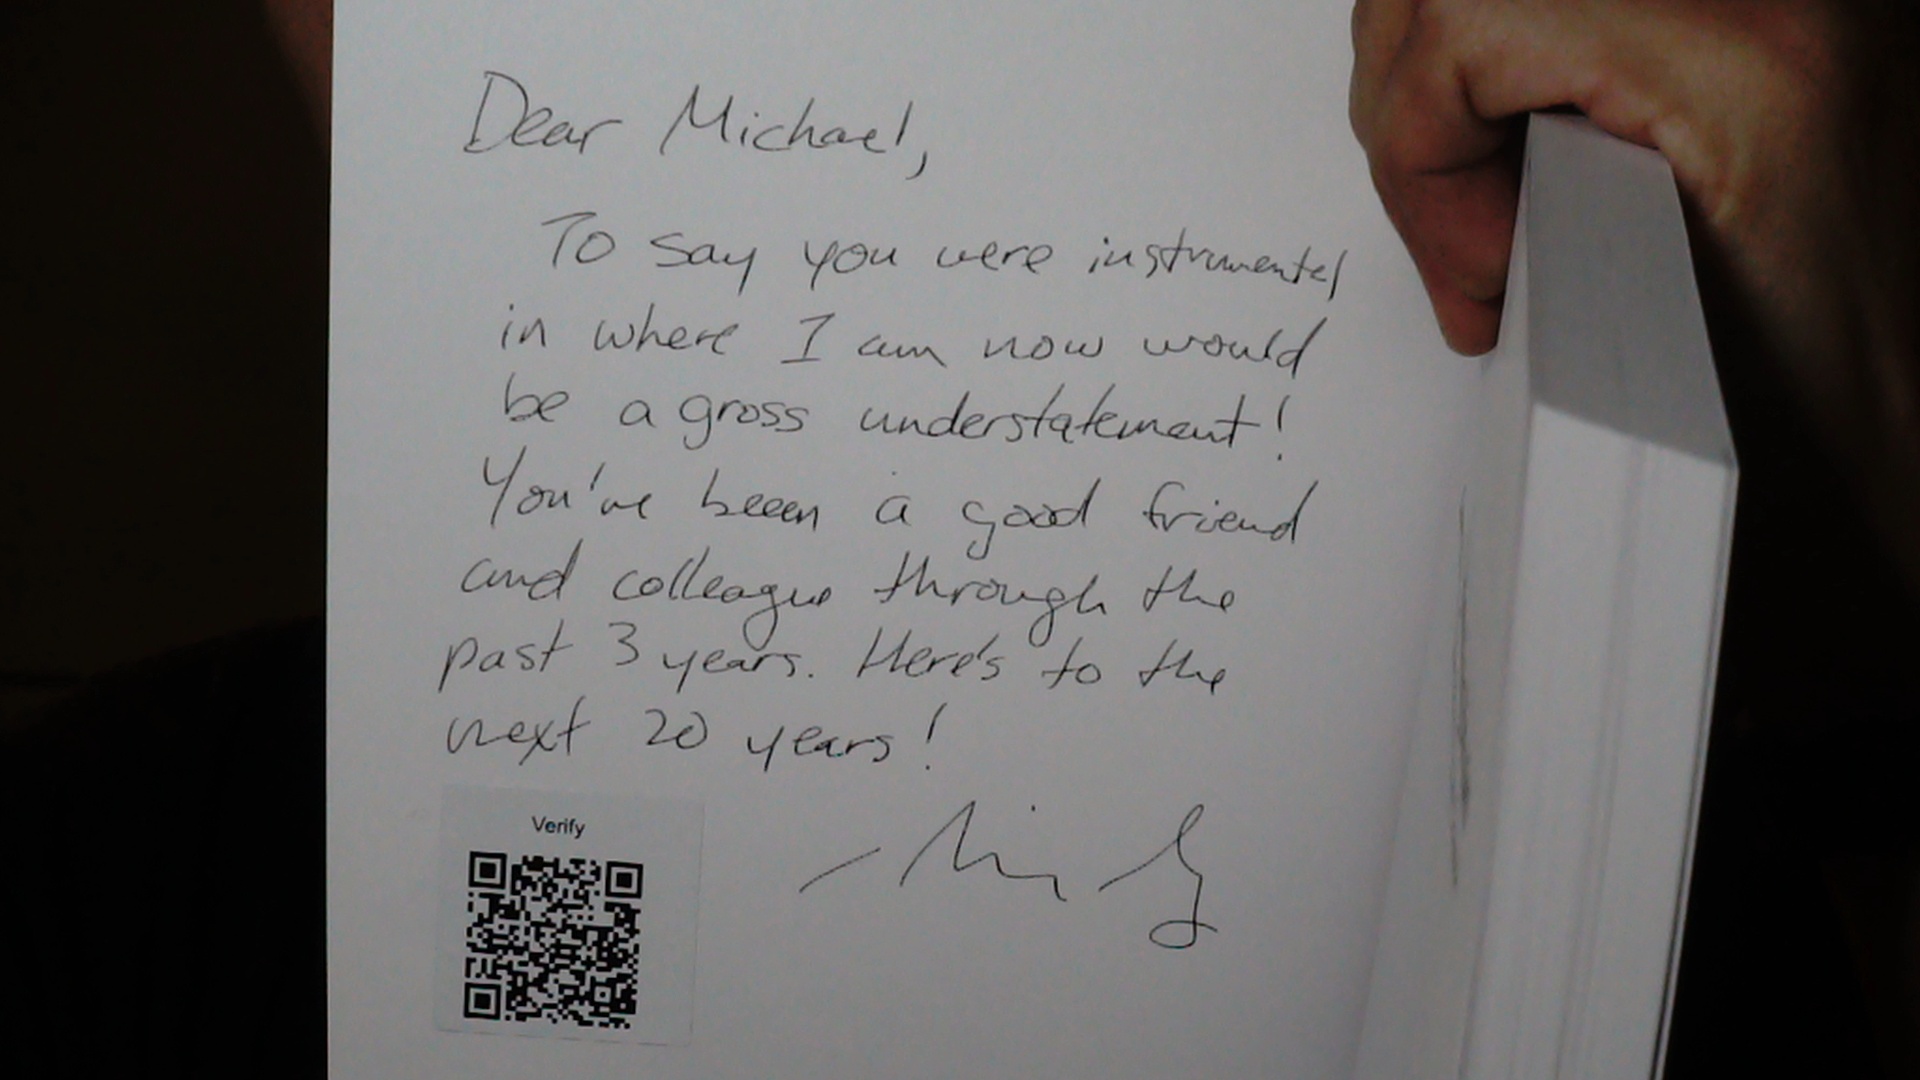 Dear Michael,
To say you were instrumental
in where I am now would
be a gross understatement!
You've beeen a good friend
and colleague through the
past 3 years. Here's to the
next 20 years!
Verify